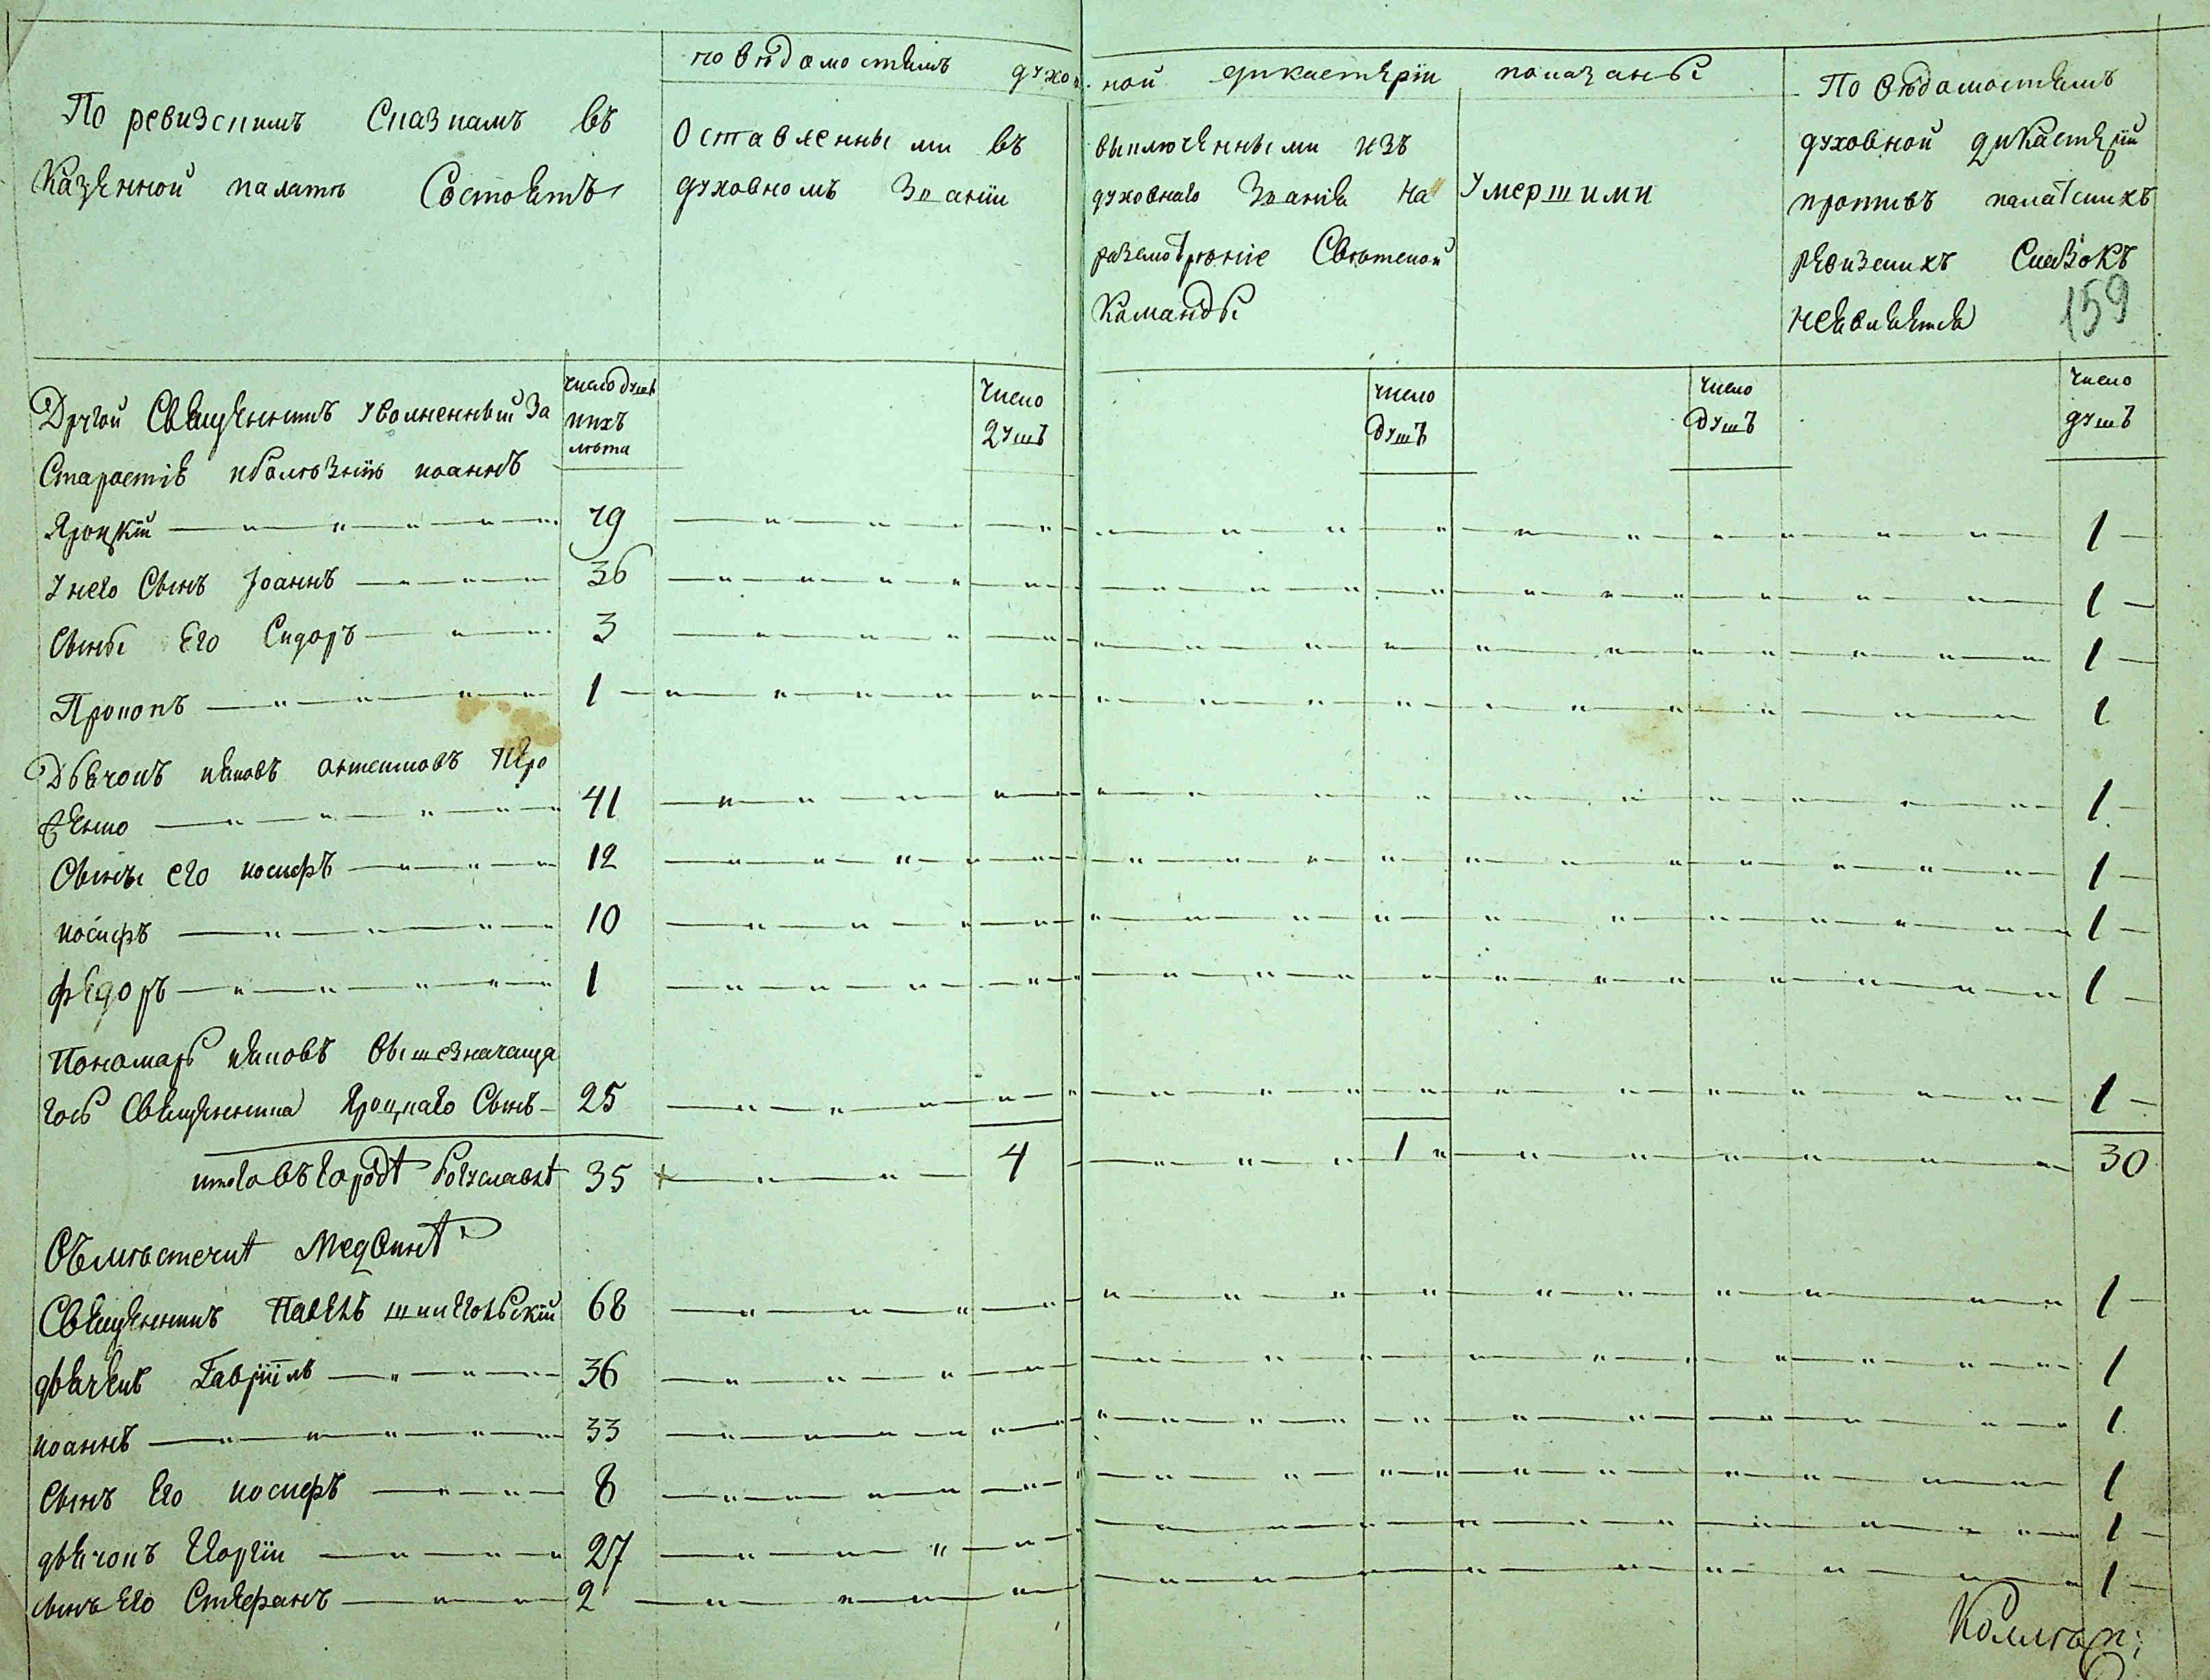 По ревизскимъ Сказкамъ въ
Казенной палатѣ Состоитъ
По вѣдомостямъ духов-
ной дикастеріи показаны
Оставленными въ
духовномъ Званіи
выключенными изъ
духовнаго Званія на
разсмотрѣніе Свѣтской
Команды
Умершими
По вѣдомостямъ
духовной дикастеріи
противъ палатскихъ
ревизскихъ Сказокъ
неявляется
159
число душъ
ихъ
лѣта
Число
душъ
число
душъ
число
душъ
число
душъ
Другой Священникъ уволненный за
Старостію и болѣзнію иоаннъ
Яроцкій 79 1
У него Сынъ Іоаннъ 36 1
Сыны Его Сидоръ 3 1
Прокопъ 1 1
Дьячокъ Яковъ
41 1
Сыны его иосифъ 12 1
иосифъ 10 1
федоръ 1 1
Пономарь Яковъ Вышезначаща
гось Священника Яроцкаго Сынъ 25 1
итого въ городѣ Богуславлѣ 35 4 1 30
Въ мѣстечкѣ Медвинѣ
Священникъ Павелъ шпигольскій 68 1
дьячекъ Гавріилъ 36 1
иоаннъ 33 1
Сынъ Его иосифъ 8 1
дьячокъ Георгіи 27 1
сынъ Его Стефанъ 2 1